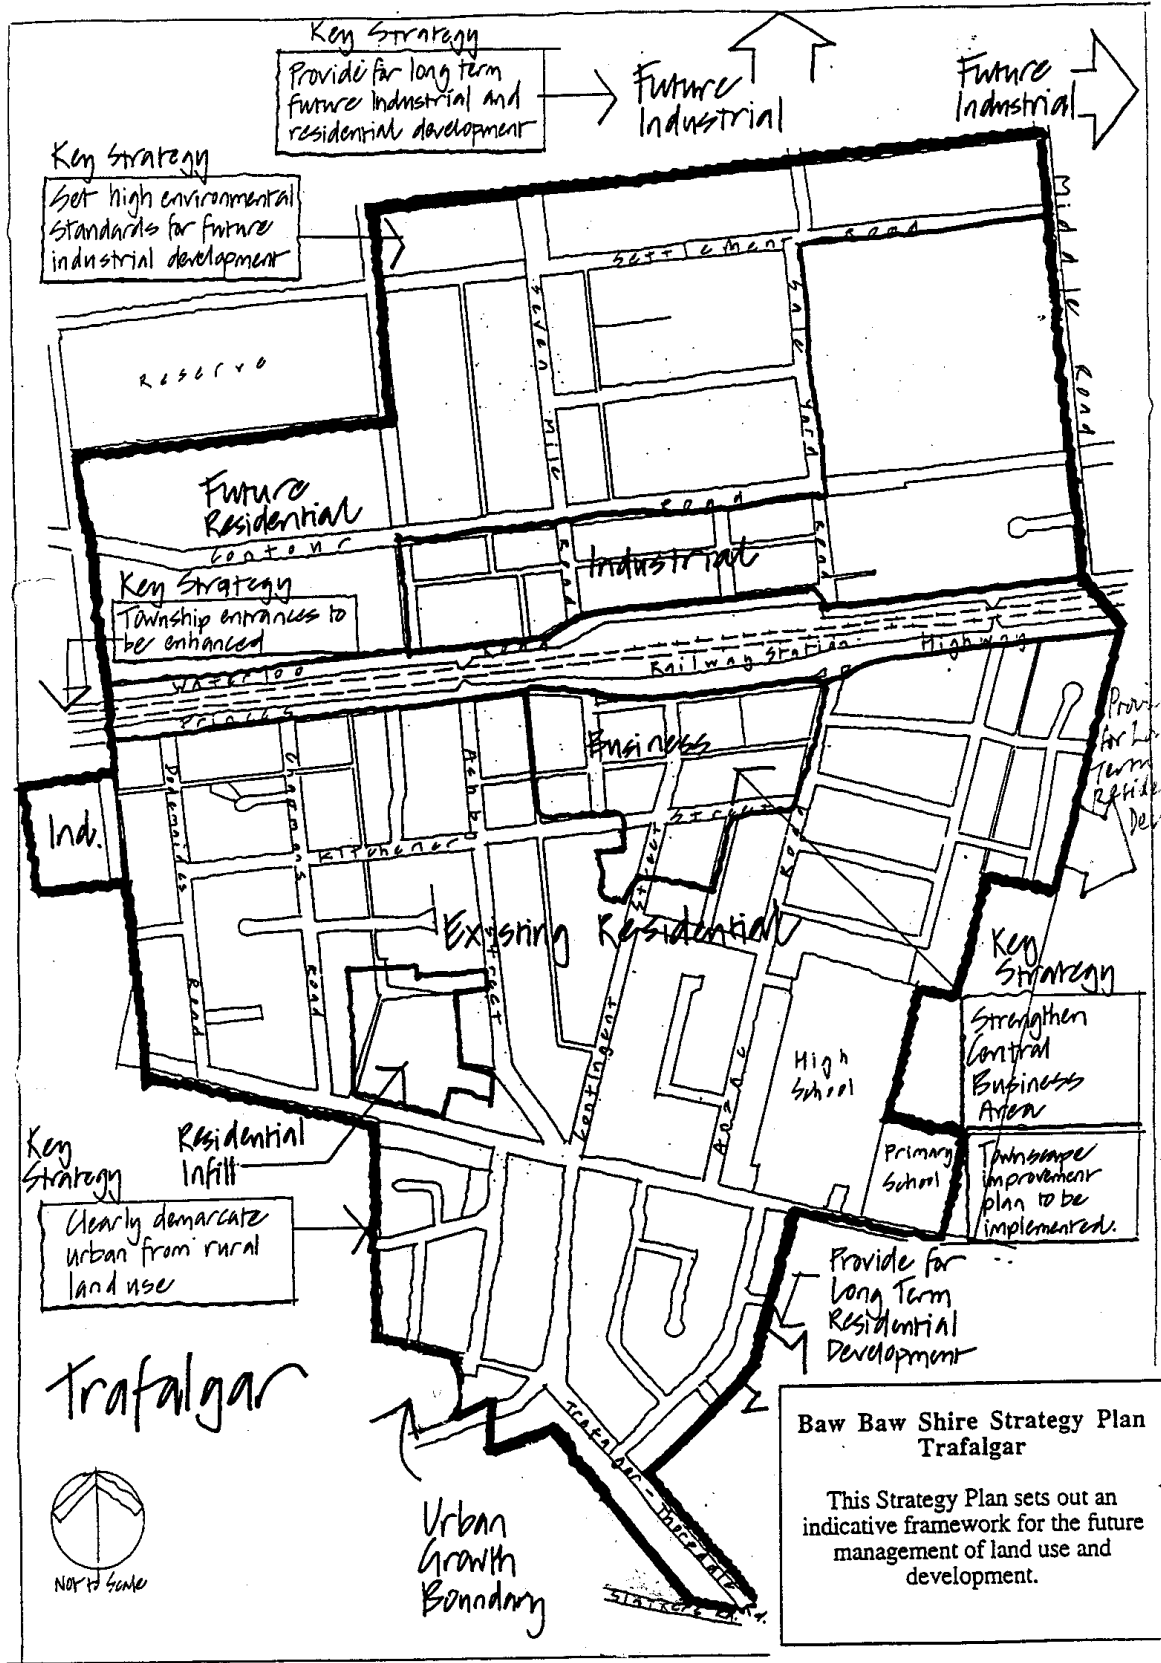 Key Strategy
Provide for long term
future Industrial and
residential development
Future
Industrial
Future
Industrial
Key Strategy
Set high environmental
standards for future
industrial development
Middle Road
Settlement Road
Sale Yard Road
Seven Mile Road
Reserve
Future
Residential
Contour Road
Industrial
Key Strategy
Township entrances to
be enhanced
Waterloo Road
Railway Station
Princes Highway
Business
Ind.
Road
Chapmans Road
Kitchener Street
Street
Contingent Street
Anzac Road
Existing Residential
for
Term
Key
Strategy
Strengthen
Central
Business
Area
Townscape
improvement
plan to be
implemented.
High
School
Primary
School
Key
Strategy
Residential
Infill
Clearly demarcate
urban from rural
land use
Provide for
Long Term
Residential
Development
Trafalgar
Urban
Growth
Boundary
Trafalgar - Thorpdale Rd.
Not to Scale
Baw Baw Shire Strategy Plan
Trafalgar
This Strategy Plan sets out an
indicative framework for the future
management of land use and
development.